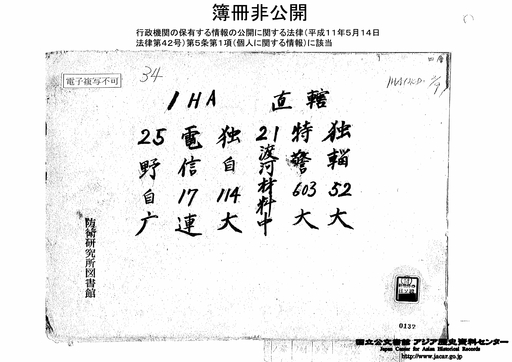 簿冊非公開
行政機関の保有する情報の公開に関する法律(平成11年5月14日
法律第42号)第5条第1項(個人に関する情報)に該当
電子複写不可
34
1HA 直轄
独輜52大
特警603大
21渡河材料中
独自114大
電信17連
25野自广
防衛研究所図書館
0137
国立公文書館 アジア歴史資料センター
Japan Center for Asian Historical Records
http://www.jacar.go.jp